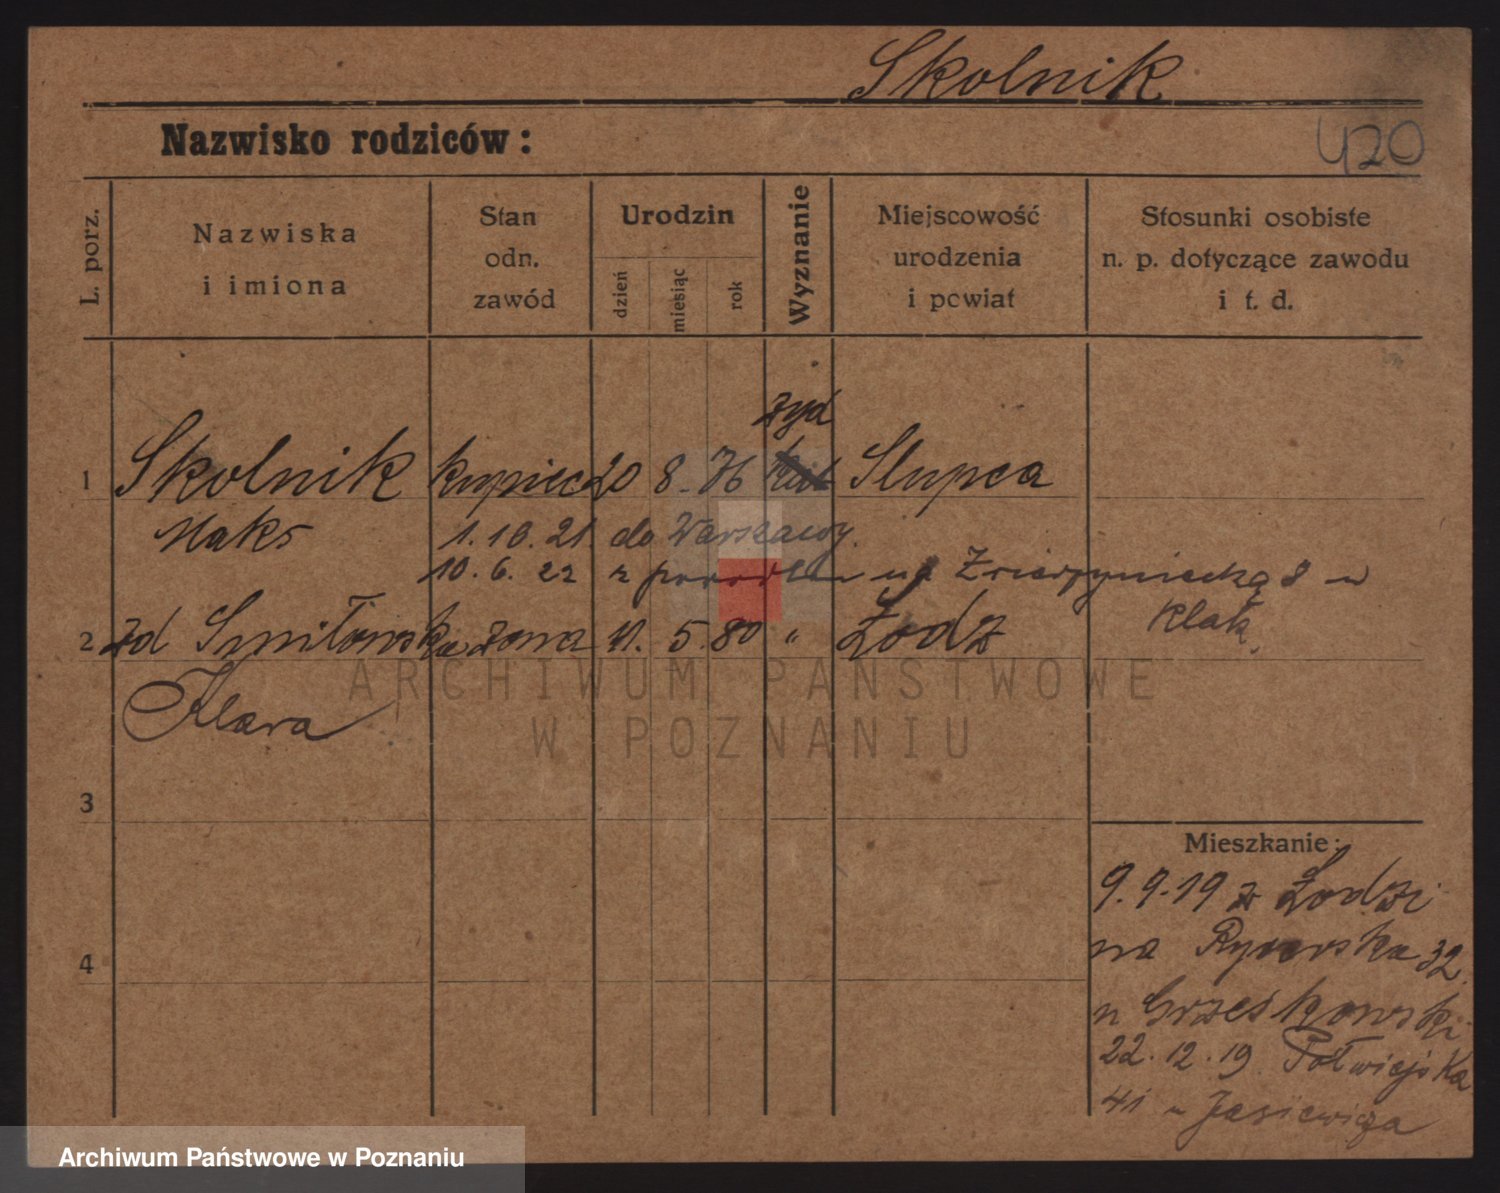 Skolnik
Nazwisko rodziców:
420
L. porz.
Nazwiska
i imiona
Stan
odn.
zawód
Urodzin
dzień
miesiąc
rok
Wyznanie
Miejscowość
urodzenia
i powiat
Stosunki osobiste
n. p. dotyczące zawodu
i t. d.
żyd
1 Skolnik kupiec 20 8-76 kat Slupca
Maks 1.10.21. do Warszawy.
10.6.22 z powrotem na Zwierzyniecką 8 u
Klatt
2 zd Smiłowska żona 11. 5.80 " Łodz
Klara
ARCHIWUM PAŃSTWOWE
W POZNANIU
3
4
Mieszkanie:
9.9.19 z Łodzi
na Rycerska 32
u Grześkowski
22.12.19 Półwiejska
41 u Jasiewicza
Archiwum Państwowe w Poznaniu